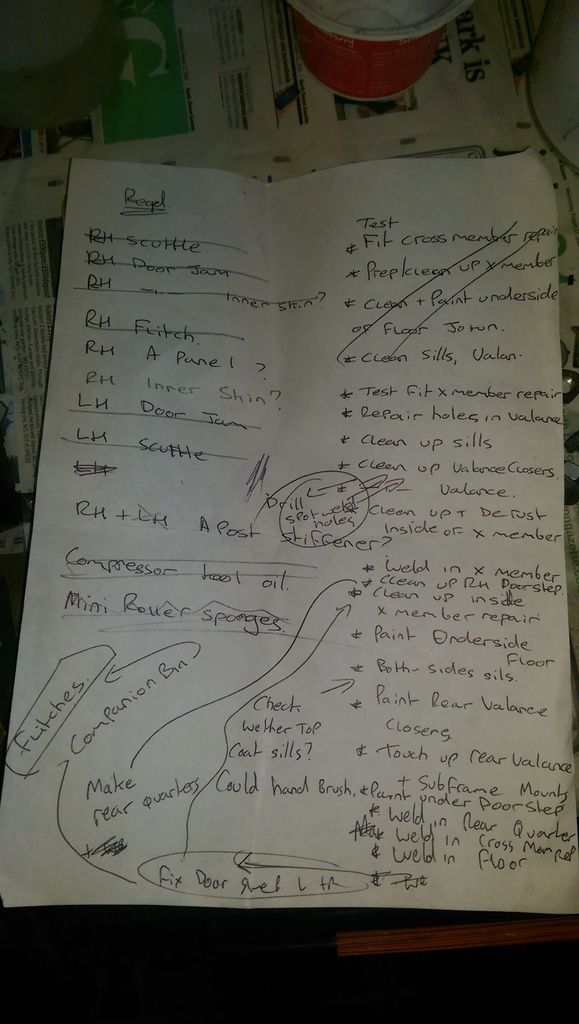 ark is
Reqd.
RH Scuttle
RH Door Jam
RH Inner Skin?
RH Flitch.
RH A Panel ?
RH Inner Skin?
LH Door Jam
LH Scuttle
RH + LH A Post Stiffener?
Drill
spot weld
holes
Compressor tool oil.
Mini Roller Sponges.
Flitches.
Companion Bin
Make
rear quarters
Check
wether Top
Coat sills?
Could hand Brush.
Fix Door
Test
* Fit cross member repair
* Prep/clean up x member
* clean + Paint underside
of Floor
* Clean Sills, Valan.
* Test Fit x member repair
* Repair holes in valance
* Clean up sills
* Clean up Valance Closers.
Valance.
* Clean up + De rust
inside of x member
* Weld in x member
* Clean up RH Doorstep.
* Clean up inside
x member repair
* Paint Underside
Floor
* Both sides sils.
* Paint Rear Valance
Closers
* Touch up rear Valance
+ Subframe Mounts
* Paint under Doorstep
* Weld in Rear Quarter
* Weld in Cross Mem Rep
* Weld in Floor